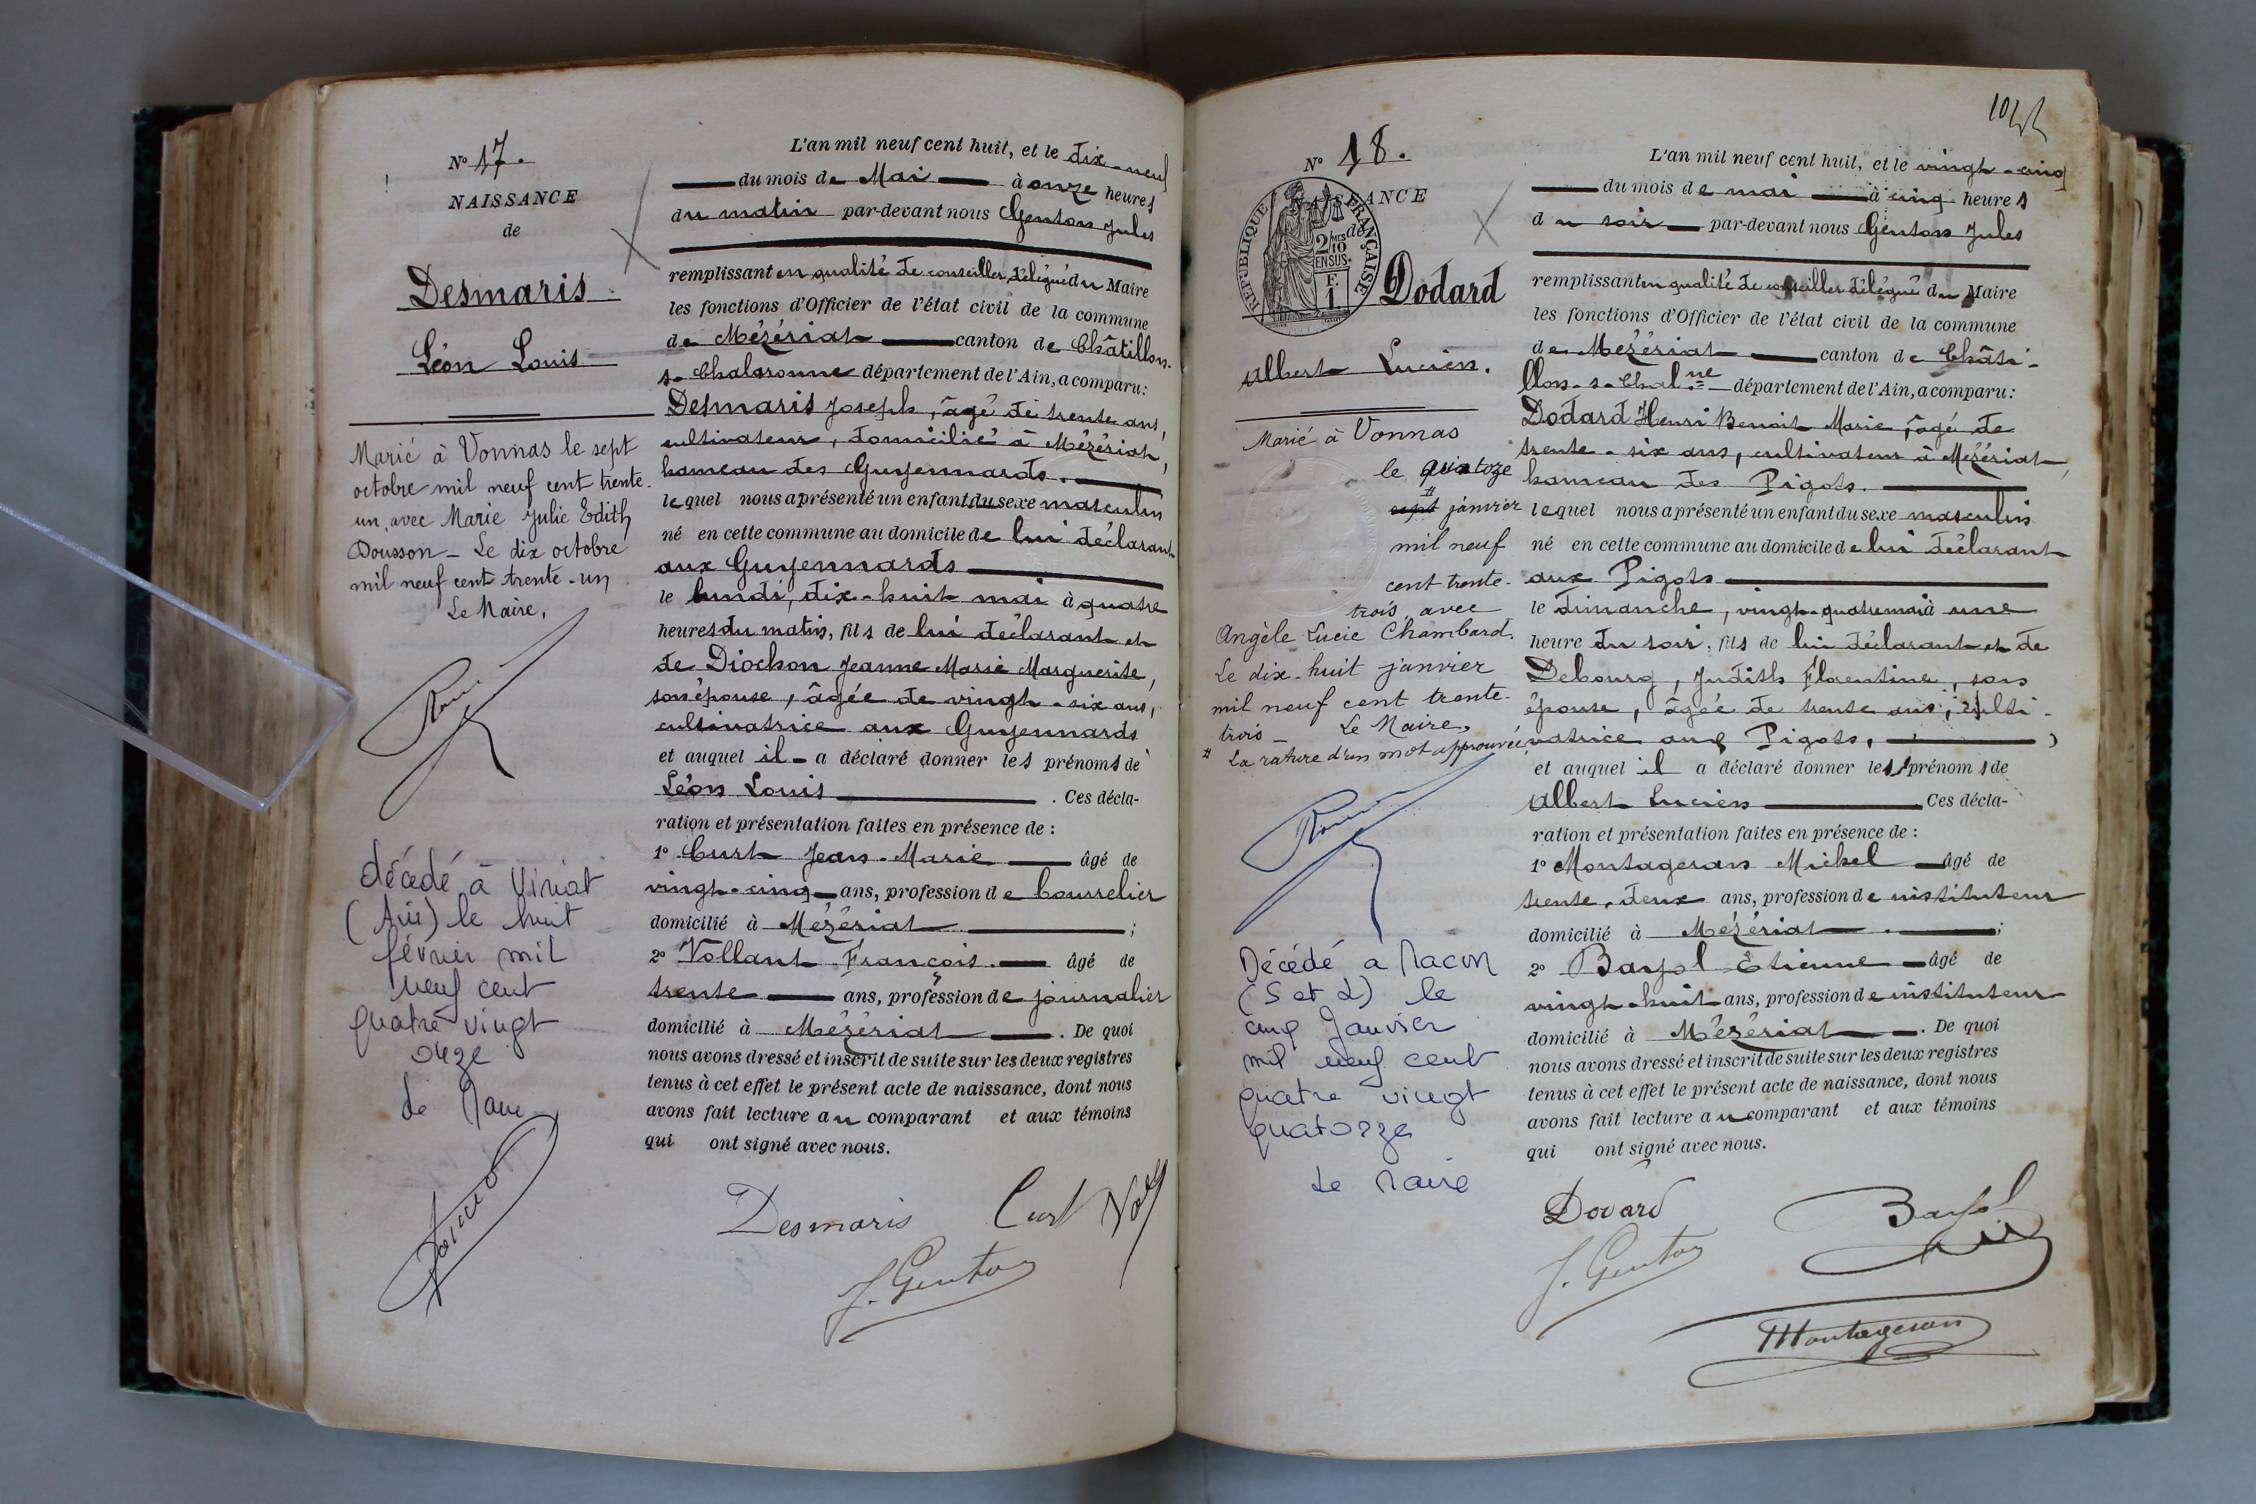 N° 17.
NAISSANCE
de
Desmaris
Léon Louis
Marié à Vonnas le sept
octobre mil neuf cent trente-
un, avec Marie Julie Edith
Dousson - Le dix octobre
mil neuf cent trente-un
Le Maire,
décédé à Viriat
(Ain) le huit
février mil
neuf cent
quatre vingt
onze
Le Maire
L'an mil neuf cent huit, et le dix-neuf
du mois de Mai à onze heures
du matin par-devant nous Genton Jules
remplissant en qualité de conseiller délégué du Maire
les fonctions d'Officier de l'état civil de la commune
de Mézériat canton de Châtillon-
s-Chalaronne département de l'Ain, a comparu:
Desmaris Joseph, âgé de trente ans,
cultivateur, domicilié à Mézériat,
hameau des Guyennards.
lequel nous a présenté un enfant du sexe masculin
né en cette commune au domicile de lui déclarant
aux Guyennards
le lundi, dix-huit mai à quatre
heures du matin, fils de lui déclarant et
de Diochon Jeanne Marie Marguerite,
son épouse, âgée de vingt-six ans,
cultivatrice aux Guyennards
et auquel il a déclaré donner les prénoms de
Léon Louis . Ces décla-
ration et présentation faites en présence de :
1° Curt Jean-Marie âgé de
vingt-cinq ans, profession de bourrelier
domicilié à Mézériat ;
2° Vollant François. âgé de
trente ans, profession de journalier
domicilié à Mézériat . De quoi
nous avons dressé et inscrit de suite sur les deux registres
tenus à cet effet le présent acte de naissance, dont nous
avons fait lecture au comparant et aux témoins
qui ont signé avec nous.
Desmaris Curt
J. Genton
N° 18.
NAISSANCE
de
REPUBLIQUE FRANÇAISE
2/10 EN SUS.
F. 1.
Dodard
Albert Lucien.
Marié à Vonnas
le quatorze
# sept janvier
mil neuf
cent trente-
trois avec
Angèle Lucie Chambard.
Le dix-huit janvier
mil neuf cent trente-
trois - Le Maire,
# La rature d'un mot approuvée
Décédé à Macon
(S et L) le
cinq Janvier
mil neuf cent
quatre vingt
quatorze
Le Maire
L'an mil neuf cent huit, et le vingt-cinq
du mois de mai à cinq heures
du soir par-devant nous Genton Jules
remplissant en qualité de conseiller délégué du Maire
les fonctions d'Officier de l'état civil de la commune
de Mézériat canton de Châti-
llon-s-Chalne département de l'Ain, a comparu:
Dodard Henri Benoit Marie, âgé de
trente-six ans, cultivateur à Mézériat,
hameau des Pigots.
lequel nous a présenté un enfant du sexe masculin
né en cette commune au domicile de lui déclarant
aux Pigots
le dimanche, vingt-quatre mai à une
heure du soir, fils de lui déclarant et de
Debourg, Judith Florentine, son
épouse, âgée de trente ans, culti-
vatrice aux Pigots,
et auquel il a déclaré donner les prénoms de
Albert Lucien Ces décla-
ration et présentation faites en présence de :
1° Montageran Michel âgé de
trente-deux ans, profession de instituteur
domicilié à Mézériat . ;
2° Bayol Etienne âgé de
vingt-huit ans, profession de instituteur
domicilié à Mézériat . De quoi
nous avons dressé et inscrit de suite sur les deux registres
tenus à cet effet le présent acte de naissance, dont nous
avons fait lecture au comparant et aux témoins
qui ont signé avec nous.
Dodard Bayol
J. Genton
Montageran